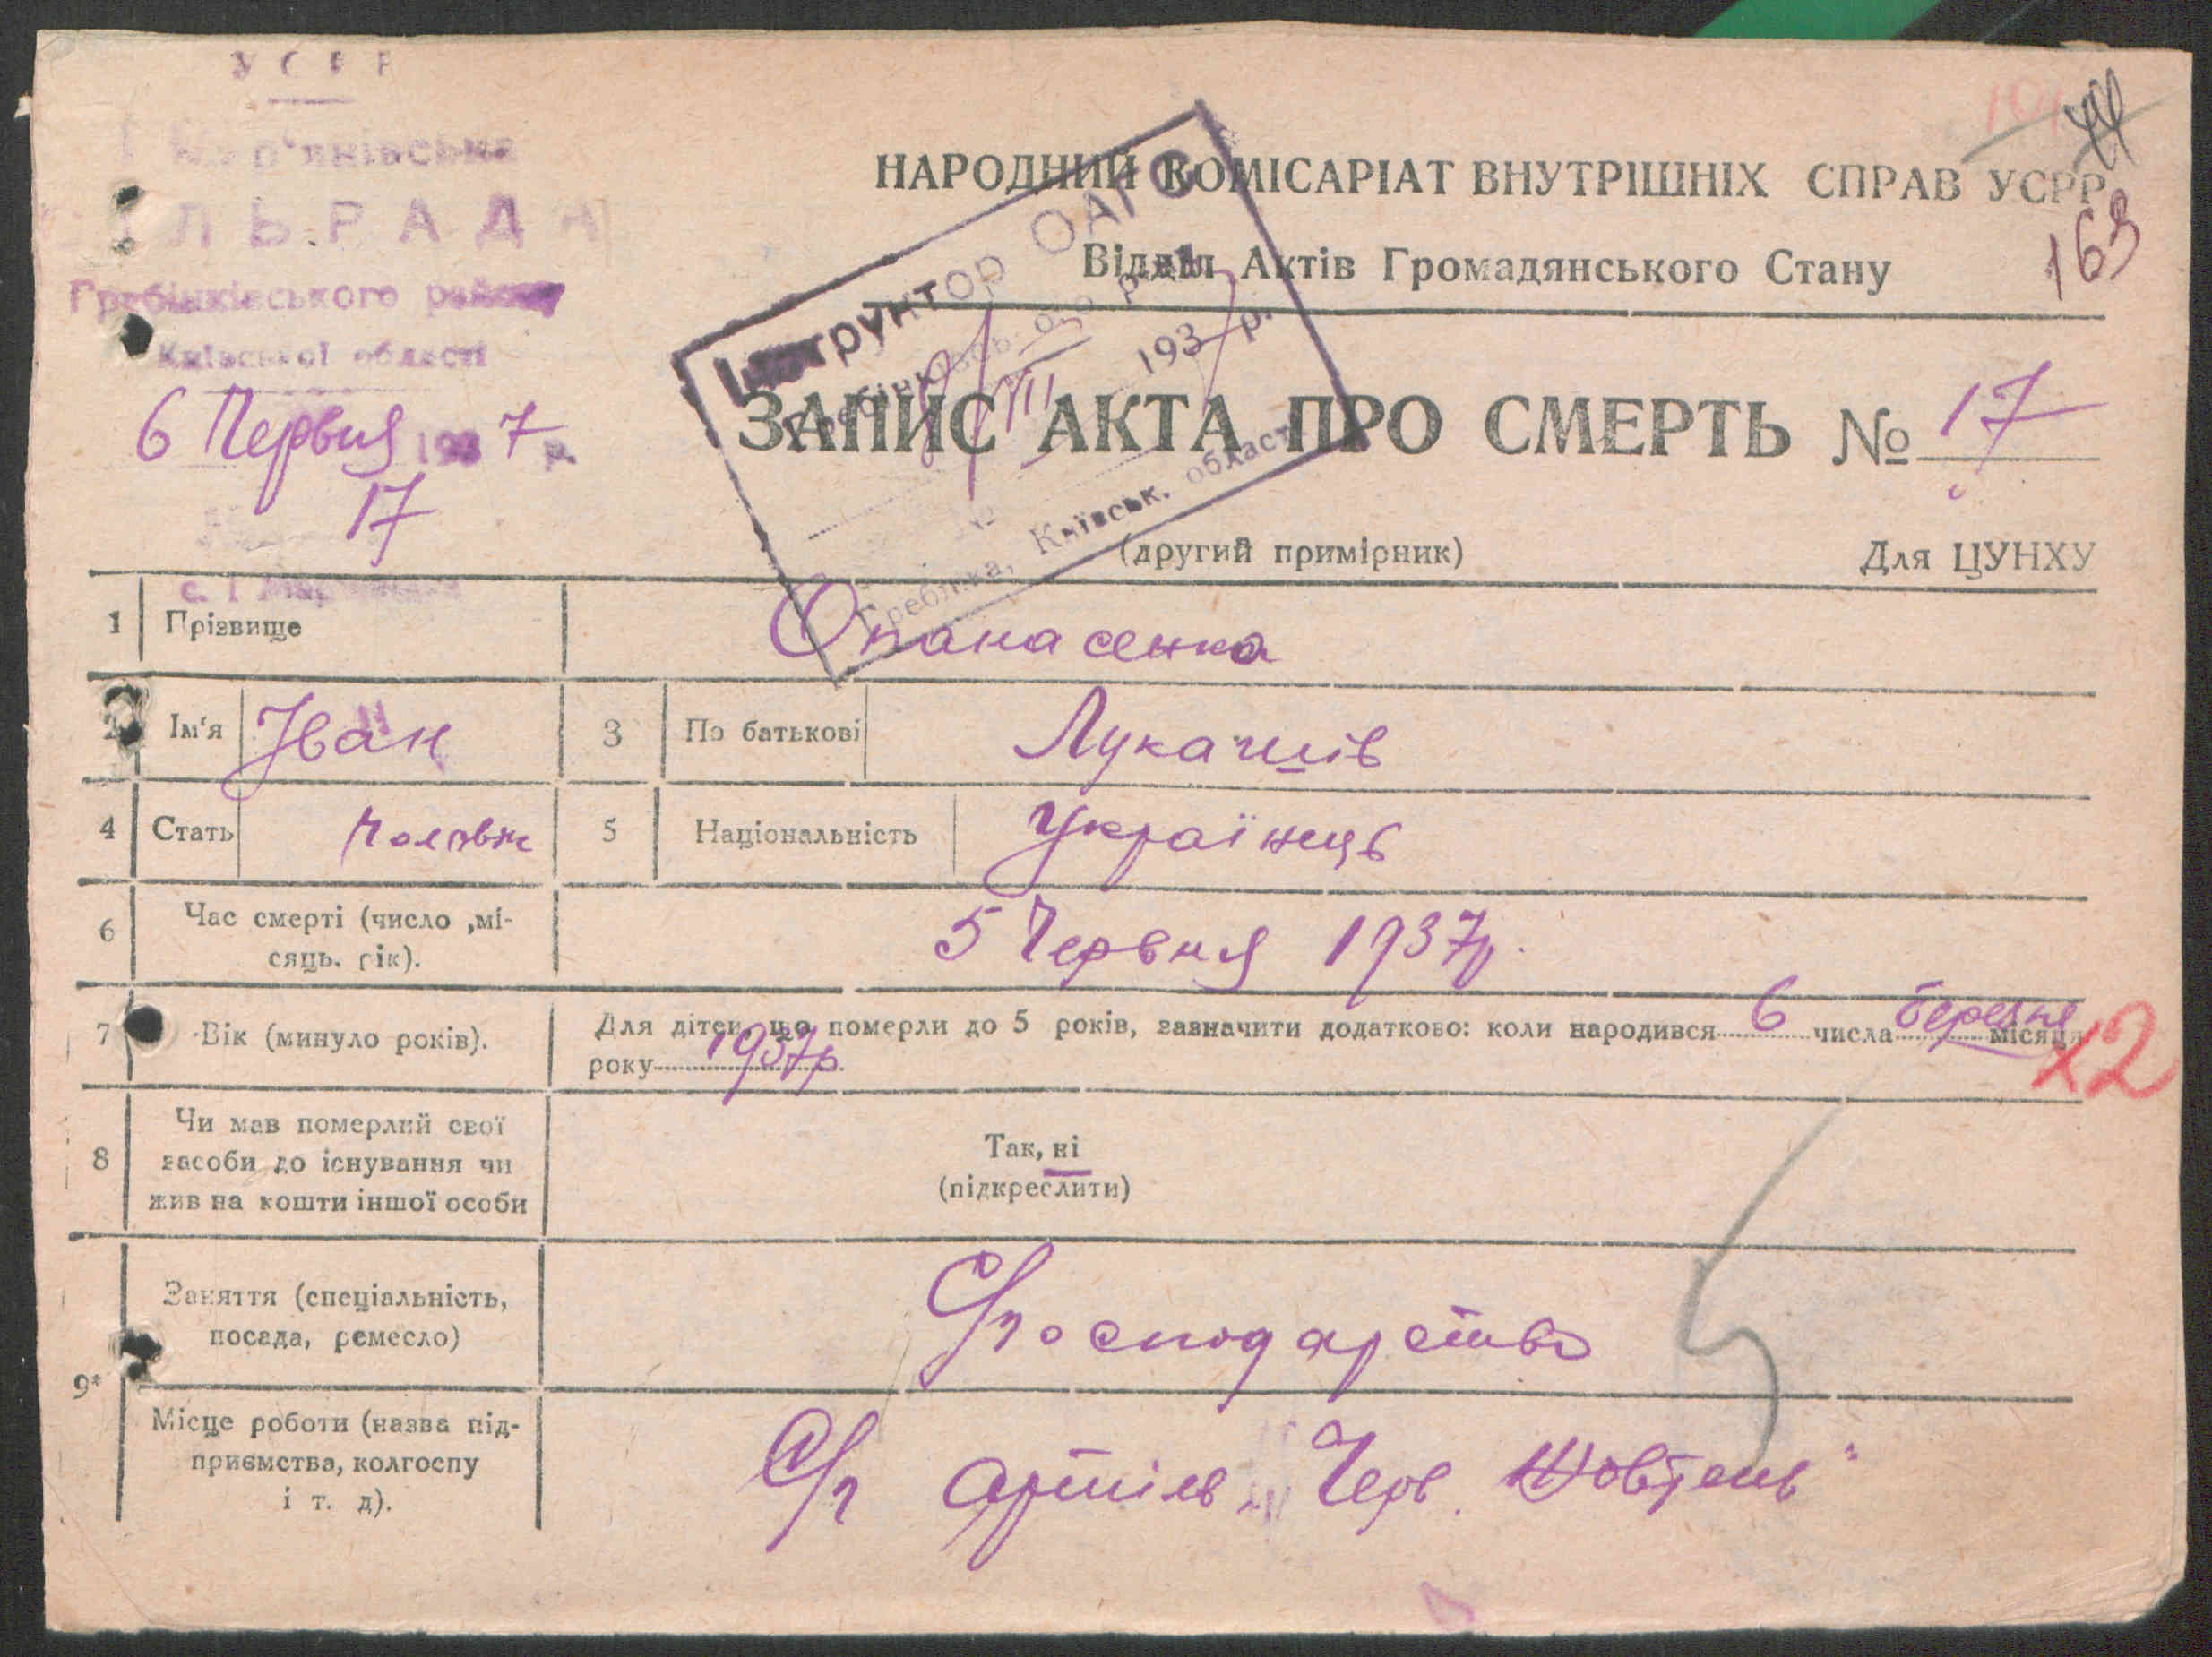 УСРР
Мар'янівська
СІЛЬРАДА
Гребінківського району
Київської області
6 Червня 1937 р.
17
с. Мар'янівка
163
НАРОДНИЙ КОМІСАРІАТ ВНУТРІШНІХ СПРАВ УСРР
Відділ Актів Громадянського Стану
Інструктор ОАГС
193 7 р.
Гребінка, Київськ. області
ЗАПИС АКТА ПРО СМЕРТЬ № 17
(другий примірник) Для ЦУНХУ
1 Прізвище Опанасенко
2 Ім'я Іван 3 По батькові Лукашів
4 Стать чоловіч 5 Національність Українець
6 Час смерті (число ,мі-
сяць, рік). 5 Червня 1937р.
7 Вік (минуло років). Для дітей, що померли до 5 років, зазначити додатково: коли народився 6 числа березня місяця
року 1937р
х2
8 Чи мав померлий свої
засоби до існування чи
жив на кошти іншої особи
Так, ні
(підкреслити)
9*
Заняття (спеціальність,
посада, ремесло) С/господарство
Місце роботи (назва під-
приємства, колгоспу
і т. д). С/г артіль „Черв. Жовтень"